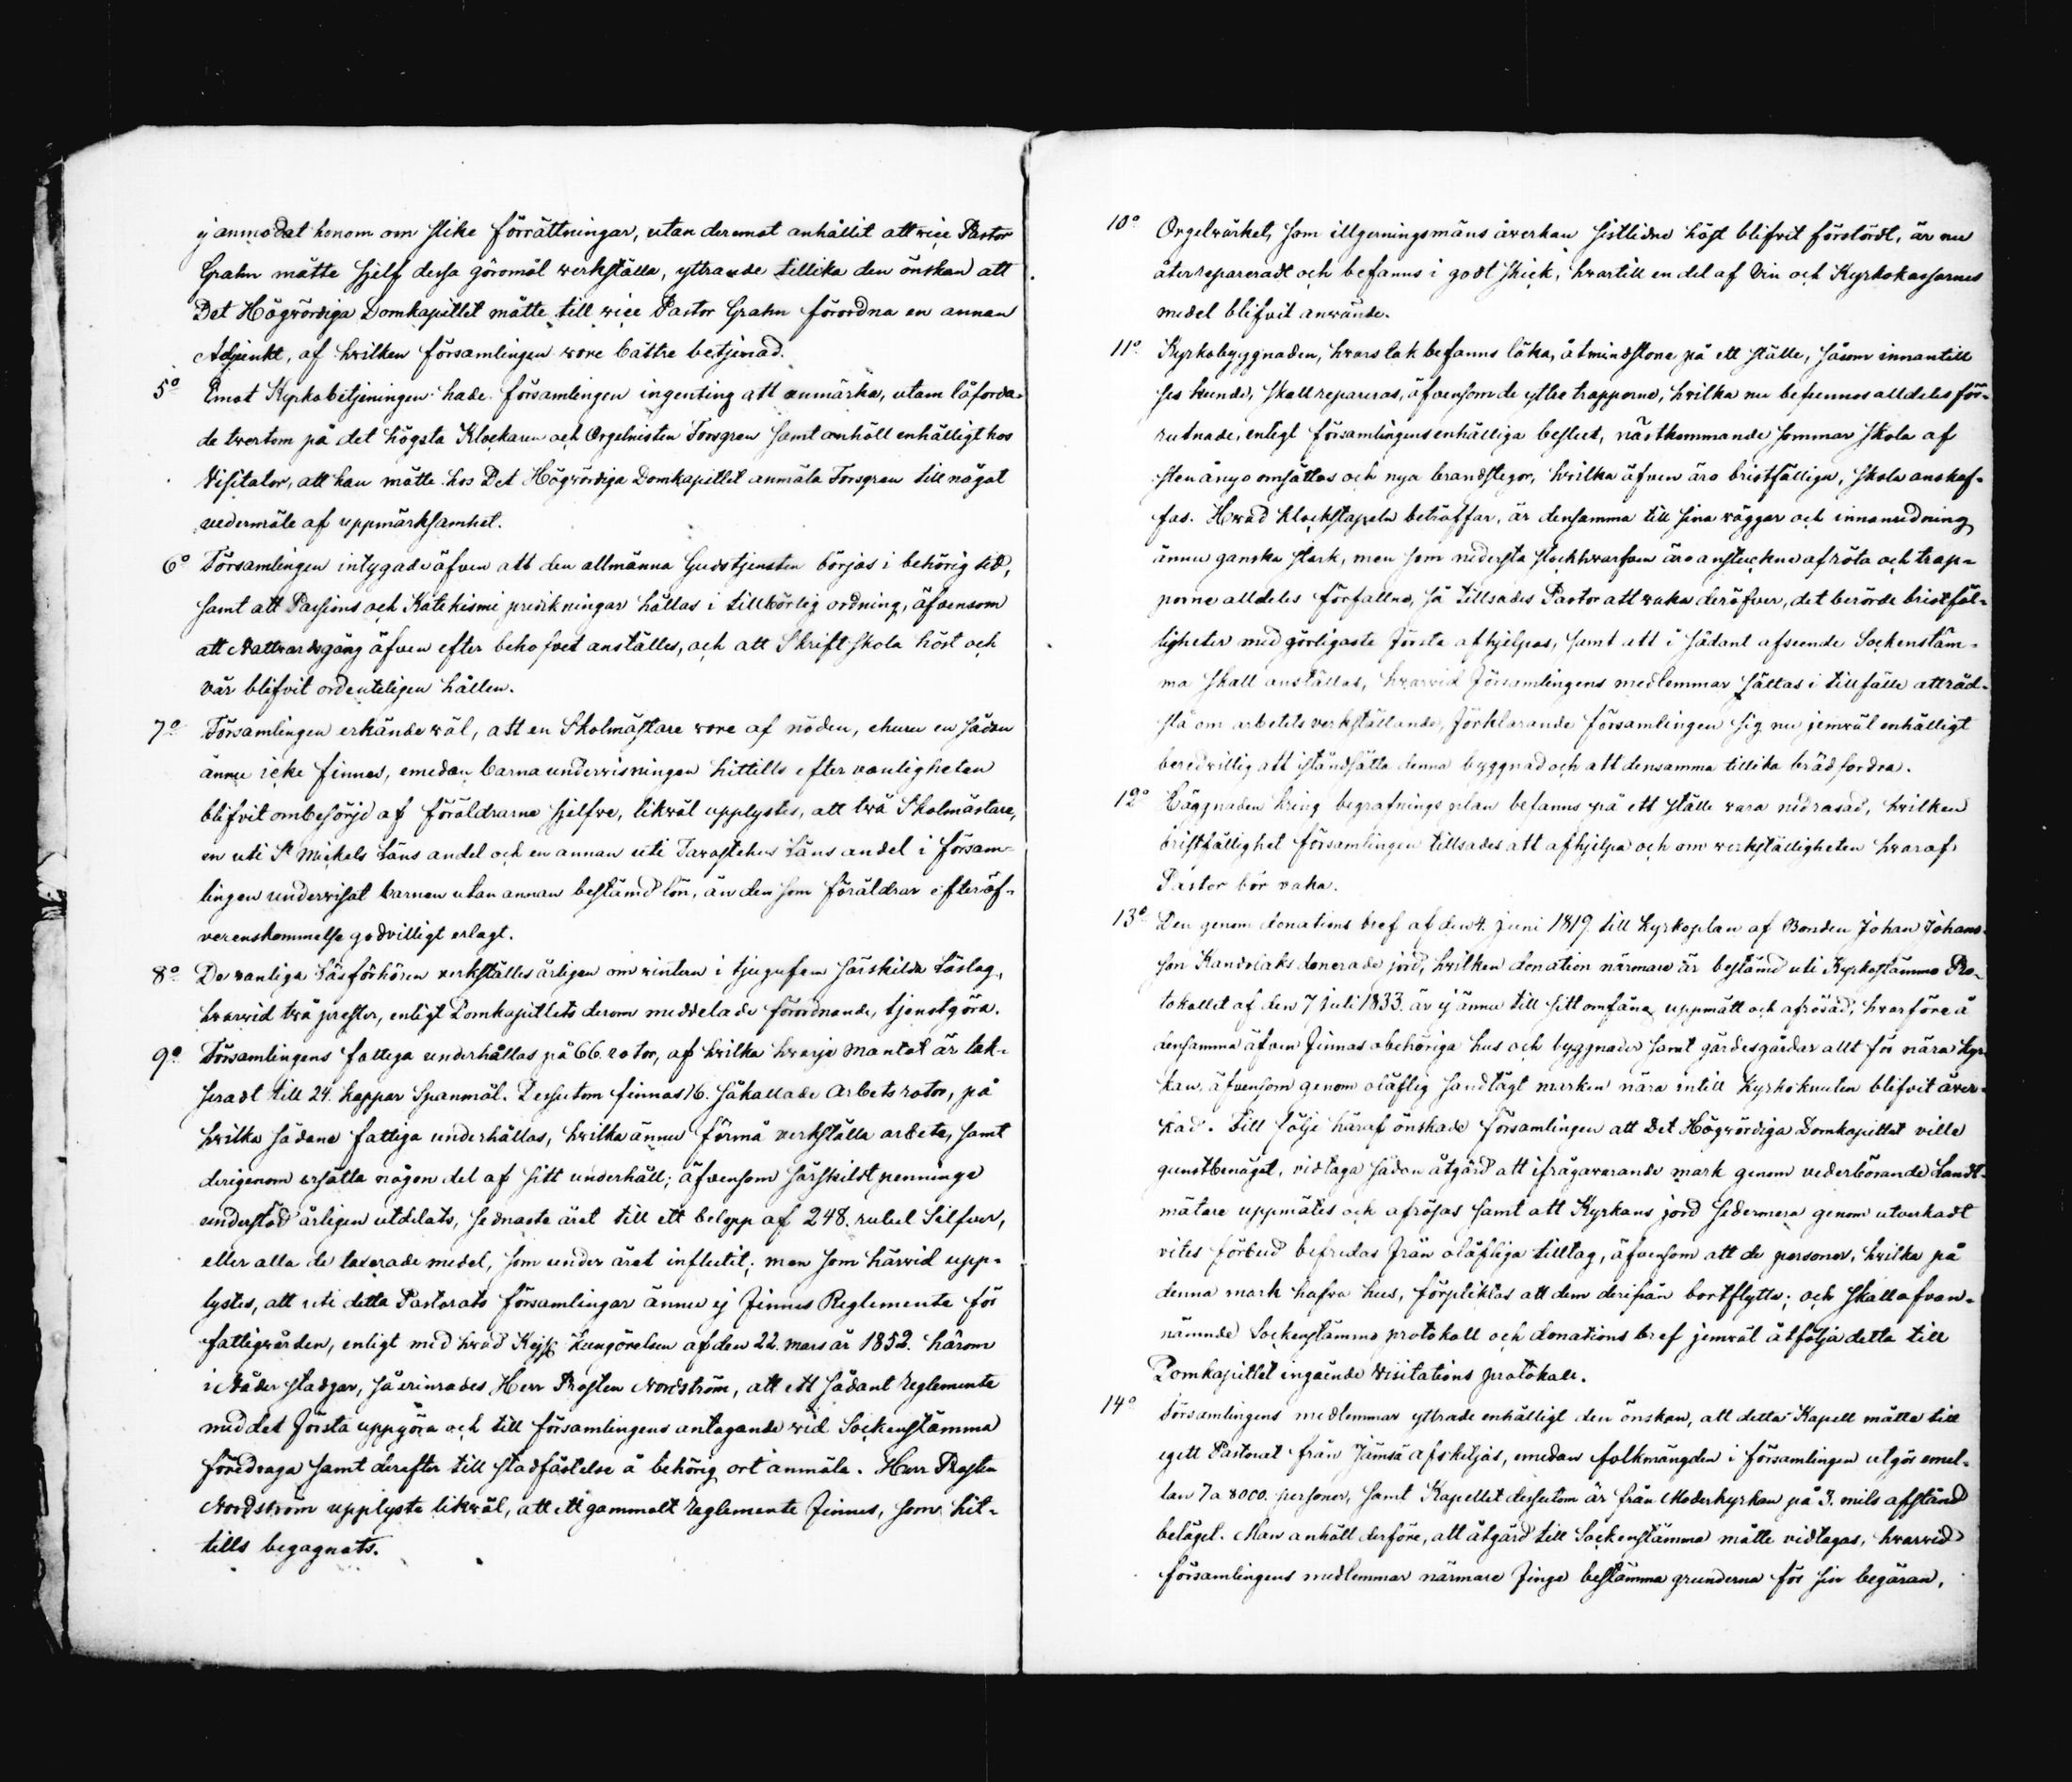 ej anmodat honom om slike förrättningar, utan deremot anhållit att vice Pastor
Grahn måtte sjelf dessa göromål werkställa, yttrande tillika den önskan att
Det Högvördiga Domkapitlet måtte till vice Pastor Grahn förordna en annan
Adjunkt, af hvilken församlingen vore bättre betjenad.
5º Emot Kyrkobetjeningen hade församlingen ingenting att anmärka, utan låforda-
de tvertom på det högsta Klockaren och Orgelnisten Forsgren samt anhöll enhälligt hos
Visitator, att han måtte hos Det Högvördiga Domkapitlet anmäla Forsgren till något
vedermäle af uppmärksamhet.
6º Församlingen intygade äfven att den allmänna Gudstjensten börjas i behörig tid,
samt att Passions och Katehismi predikningar hållas i tillbörlig ordning, äfvensom
att Nattvardsgång äfven efter behofvet anställes, och att Skriftskola höst och
vår blifvit ordenteligen hållen.
7º Församlingen erkände wäl, att en Skolmästare vore af nöden, ehuru en sådan
ännu icke finnes, emedan barnaundervisningen hittills efter vanligheten
blifvit ombesörjd af föräldrarne sjelfve, likväl upplystes, att två Skolmästare,
en uti St Michels Läns andel och en annan uti Tavastehus Läns andel i försam-
lingen undervisat barnen utan annan bestämd lön, än den som föräldrar efter öf-
verenskommelse godvilligt erlagt.
8º De vanliga Läsförhören verkställes årligen om vintern i tjugufem särskilda Läslag,
hvarvid två prester, enligt Domkapitlets derom meddelade förordnande, tjenstgöra.
9º Församlingens fattiga underhållas på 66. rotor, af hvilka hvarje Mantal är tak-
seradt till 24. kappar Spanmål. Dessutom finnas 16. såkallade arbets rotor, på
hvilka sådane fattiga underhållas, hvilka ännu förmå verkställa arbete, samt
derigenom ersätta någon del af sitt underhåll; äfvensom särskildt penninge
understöd årligen utdelats, sednaste året till ett belopp af 248. rubel Silfver,
eller alla de taxerade medel, som under året influtit; men som härvid upp-
lystes, att uti detta Pastorats församlingar ännu ej finnes Reglemente för
fattigvården, enligt med hvad Kejs. Kungörelsen af den 22. mars år 1852. härom
i Nåder stadgar, så erinrades Herr Prosten Nordström, att ett sådant reglemente
med det första uppgöra och till församlingens antagande vid Sockenstämma
föredraga samt derefter till stadfästelse å behörig ort anmäla. Herr Prosten
Nordström upplyste likväl, att ett gammalt reglemente finnes, som hit-
tills begagnats.
10º Orgelvärket, som illgerningsmäns åverkan sistlidne höst blifvit förstördt, är nu
återrepareradt och befanns i godt skick, hvartill en del af Vin och Kyrkokassornes
medel blifvit använde.
11º Kyrkobyggnaden, hvars tak befanns läka, åtminstone på ett ställe, såsom innantill
ses kunde, skall repareras, äfvensom de yttre trapporne, hvilka nu befunnos alldeles för-
rutnade, enligt församlingens enhälliga beslut, nästkommande sommar skola af
sten ånyo omsättas och nya brandstegor, hvilka äfven äro bristfälliga, skola anskaf-
fas. Hvad klockstapeln beträffar, är densamma till sina väggar och innanredning
ännu ganska stark, men som nedersta stockhvarfven äro anstuckne af röta och trap-
porne alldeles förfallne, så tillsades Pastor att vaka deröfver, det berörde bristfäl-
ligheter med görligaste första afhjelpas, samt att i sådant afseende Sockenstäm-
ma skall anställas, hvarvid församlingens medlemmar sättas i tillfälle att råd-
slå om arbetets verkställande, förklarande församlingen sig nu jemväl enhälligt
beredvillig att iståndsätta denna byggnad och att densamma tillika brädfordra.
12º Häggnaden kring begrafnings plan befanns på ett ställe vara nedrasad, hvilken
bristfällighet församlingen tillsades att afhjelpa och om verkställigheten hvaraf
Pastor bör vaka.
13º Den genom donations bref af den 4. Juni 1819. till kyrkoplan af Bonden Johan Johans-
son Kandolaks donerade jord, hvilken donation närmare är bestämd uti Kyrkostämmo Pro-
tokollet af den 7 Juli 1833. är ej ännu till sitt omfång uppmätt och afrösad, hvarföre å
densamma äfven finnas obehöriga hus och byggnader samt gärdesgårdar allt för nära Kyr-
kan, äfvensom genom olåflig sandtägt marken nära intill Kyrkoknuten blifvit åver-
kad. Till följe häraf önskade församlingen att Det Högvördiga Domkapitlet ville
gunstbenäget, vidtaga sådan åtgärd att ifrågavarande mark genom vederbörande Landt-
mätare uppmätes och afrösas samt att Kyrkans jord sedermera genom utverkadt
vites förbud befredas från olåfliga tilltag, äfvensom att de personer, hvilka på
denna mark hafva hus, förpliktas att dem derifrån bortflytta; och skall ofvan-
nämnde Sockenstämmo protokoll och donations bref jemväl åtfölja detta till
Domkapitlet ingående Visitations protokoll.
14º Församlingens medlemmar yttrade enhälligt den önskan, att detta Kapell måtte till
eget Pastorat från Jämsä afskiljas, emedan folkmängden i församlingen utgör emel-
lan 7 a 8000. personer, samt Kapellet dessutom är från Moderkyrkan på 3. mils afstånd
beläget. Man anhöll derföre, att åtgärd till Sockenstämma måtte vidtagas, hvarvid
församlingens medlemmar närmare finge bestämma grunderna för sin begäran.